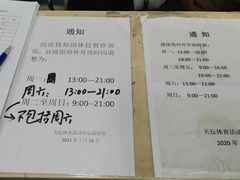 通知
因疫情原因体校暂停训
练，游泳馆对外开放时间调
整为：
周一 13:00—21:00
周六: 13:00-21:00
周二至周日：9:00—21:00
不包括周六
天坛体育活动中心游泳馆
2021年1月28日
通知
游泳馆对外开放时间：
周一： 13:00—21:00
周二至周五：9:00—16:00
18:00—21:00
周六： 13:00—21:00
周日： 9:00—21:00
天坛体育活动
2020年